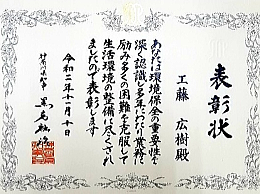 表彰状
工藤 広樹殿
あなたは環境保全の重要性を
深く認識し多年にわたり業務に
励み多くの困難を克服して
生活環境の整備に尽くされ
ましたので表彰します
令和二年十二月十日